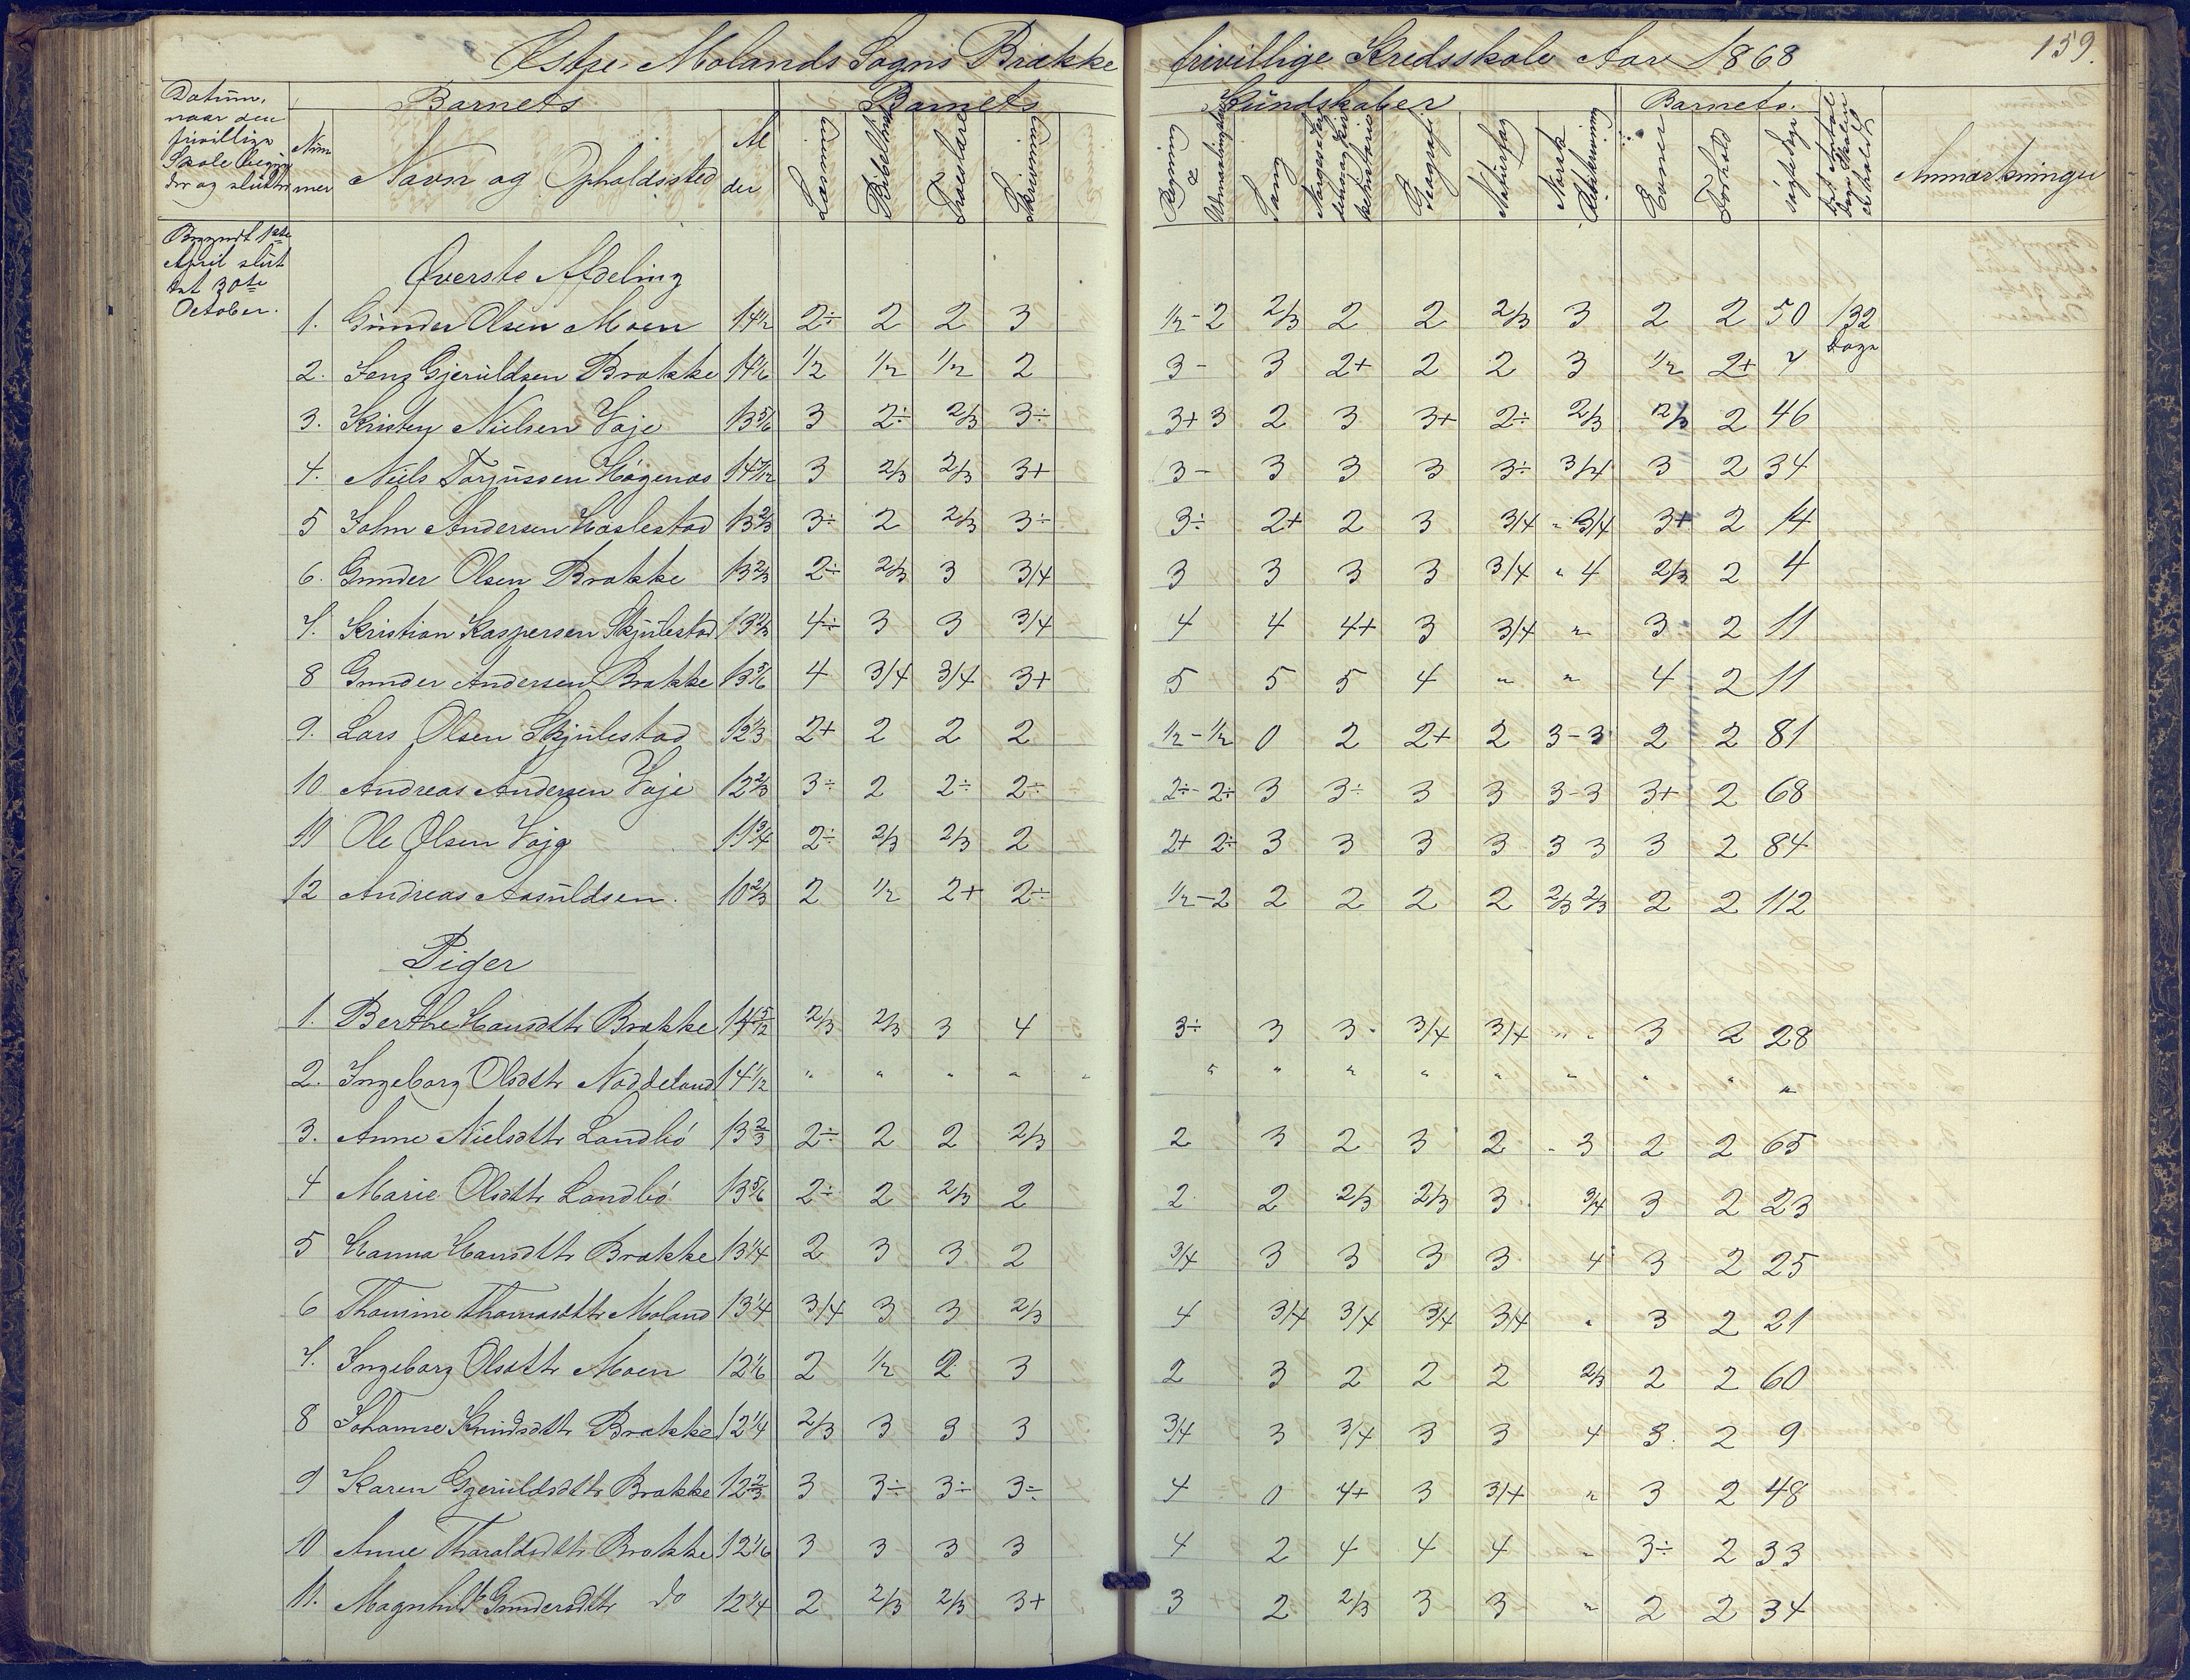 Østre Molands Sogns Brække frivillige Kredsskole Aar 1868
159.
Datum, naar den frivillige Skole begynder og sluttes
Nummer
Barnets
Navn og Opholdssted
Alder
Barnets Kundskaber
Læsning
Bibelhist
Troeslære
Skrivning
Regning
Sang
Geografi
Naturfag
Norsk Retskrivning
Barnets
Evner
Forhold
søgte dage
Anmærkninger
Begyndt 1ste April slut
tet 30te October.
Øverste Afdeling
1. Gunder Olsen Moen 14½ 2÷ 2 2 3 ½-2 2/3 2 2 2/3 3 2 2 50 132 Dage
2. Jens Gjeruldsen Brække 14 1/6 1/2 1/2 1/2 2 3- 3 2+ 2 2 3 1/2 2+ 7
3. Kristen Nielsen Vaje 13 5/6 3 2÷ 2/3 3÷ 3+ 3 2 3 3+ 2÷ 2/3 2/3 2 46
4. Niels Torjussen Høgenæs 14 7/12 3 2/3 2/3 3+ 3- 3 3 3 3÷ 3/4 3 2 34
5 John Andersen Haslestad 13 2/3 3÷ 2 2/3 3÷ 3÷ 2+ 2 3 3/4 " 3/4 3+ 2 14
6. Gunder Olsen Brække 13 2/3 2÷ 2/3 3 3/4 3 3 3 3 3/4 " 4 2/3 2 4
7. Kristian Kaspersen Skjulestad 13 2/3 4÷ 3 3 3/4 4 4 4+ 3 3/4 " 3 2 11
8 Gunder Andersen Brække 13 5/6 4 3/4 3/4 3+ 5 5 5 4 " " 4 2 11
9. Lars Olsen Skjulestad 12 1/3 2+ 2 2 2 ½-½ 0 2 2+ 2 3-3 2 2 81
10 Andreas Andersen Vaje 12 2/3 3÷ 2 2÷ 2÷ 2÷-2÷ 3 3÷ 3 3 3-3 3+ 2 68
11 Ole Olsen Vaje 11 3/4 2÷ 2/3 2/3 2 2+ 2÷ 3 3 3 3 3 3 3 2 84
12 Andreas Aasuldsen. 10 2/3 2 1/2 2+ 2÷ ½-2 2 2 2 2 2/3 2/3 2 2 112
Piger
1. Berthe Hansdttr Brække 14 5/12 2/3 2/3 3 4 3÷ 3 3 3/4 3/4 " " 3 2 28
2. Ingeborg Olsdttr Noddeland 14 1/12 " " " " " " " " " " " " "
3. Anne Nielsdttr Landbö 13 2/3 2÷ 2 2 2/3 2 3 2 3 2 " 3 2 2 65
4 Marie Olsdttr Landbö 13 5/6 2÷ 2 2/3 2 2 2 2/3 2/3 3 3/4 3 2 23
5 Hanna Hansdttr Brække 13 1/4 2 3 3 2 3/4 3 3 3 3 4 3 2 25
6 Thomine Thomasdttr Moland 13 1/4 3/4 3 3 2/3 4 3/4 3/4 3/4 3/4 " 3 2 21
7. Ingeborg Olsdttr Moen 12 1/6 2 1/2 2 3 2 3 2 2 2 2/3 2 2 60
8 Johanne Knudsdttr Brække 12 1/4 2/3 3 3 3 3/4 3 3/4 3 3 4 3 2 9
9 Karen Gjeruldsdttr Brække 12 2/3 3 3÷ 3÷ 3÷ 4 0 4+ 3 3/4 " 3 2 48
10 Anne Tharaldsdttr Brække 12 1/6 3 3 3 3 4 2 4 4 4 " 3÷ 2 33
11. Magnhild Gundersdttr do 12 1/4 2 2/3 2/3 3+ 3 2 2/3 3 3 " 2 2 34